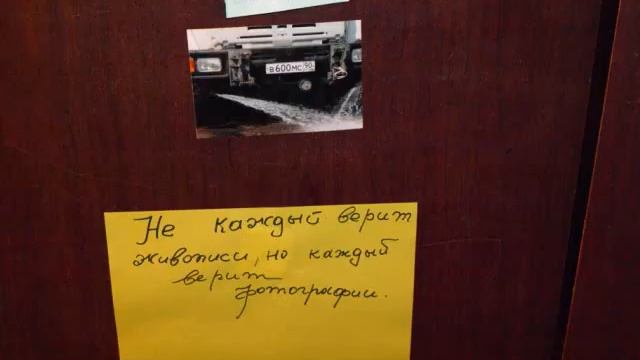 В600МС 90
Не каждый верит
живописи, но каждый
верит
фотографии.